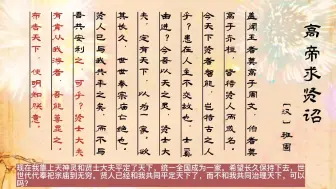 高帝求贤诏
〔汉〕班固
盖闻王者莫高于周文，伯者莫
高于齐桓，皆待贤人而成名。
今天下贤者智能，岂特古之人
乎？患在人主不交故也，士奚
由进？今吾以天之灵，贤士大
夫，定有天下，以为一家，欲
其长久，世世奉宗庙亡绝也。
贤人已与我共平之矣，而不与
吾共安利之，可乎？贤士大夫
有肯从我游者，吾能尊显之。
布告天下，使明知朕意。
现在我靠上天神灵和贤士大夫平定了天下，统一全国成为一家，希望长久保持下去，世
世代代奉祀宗庙到无穷。贤人已经和我共同平定天下了，而不和我共同治理天下，可以
吗？